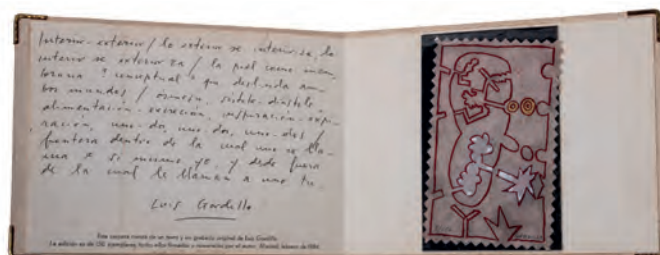 Interior-exterior / lo exterior se interioriza, lo
interior se exterioriza / la piel como mem-
brana "conceptual" que deslinda am-
bos mundos / ósmosis, sístole-diástole
alimentación-excreción, inspiración-expi-
ración, uno-dos, uno-dos, uno-dos /
frontera dentro de la cual uno se lla-
ma a si mismo yo, y desde fuera
de la cual le llaman a uno tu.
Luis Gordillo
Esta carpeta consta de un texto y un grabado original de Luis Gordillo.
La edición es de 150 ejemplares, todos ellos firmados y numerados por el autor. Madrid, febrero de 1984.